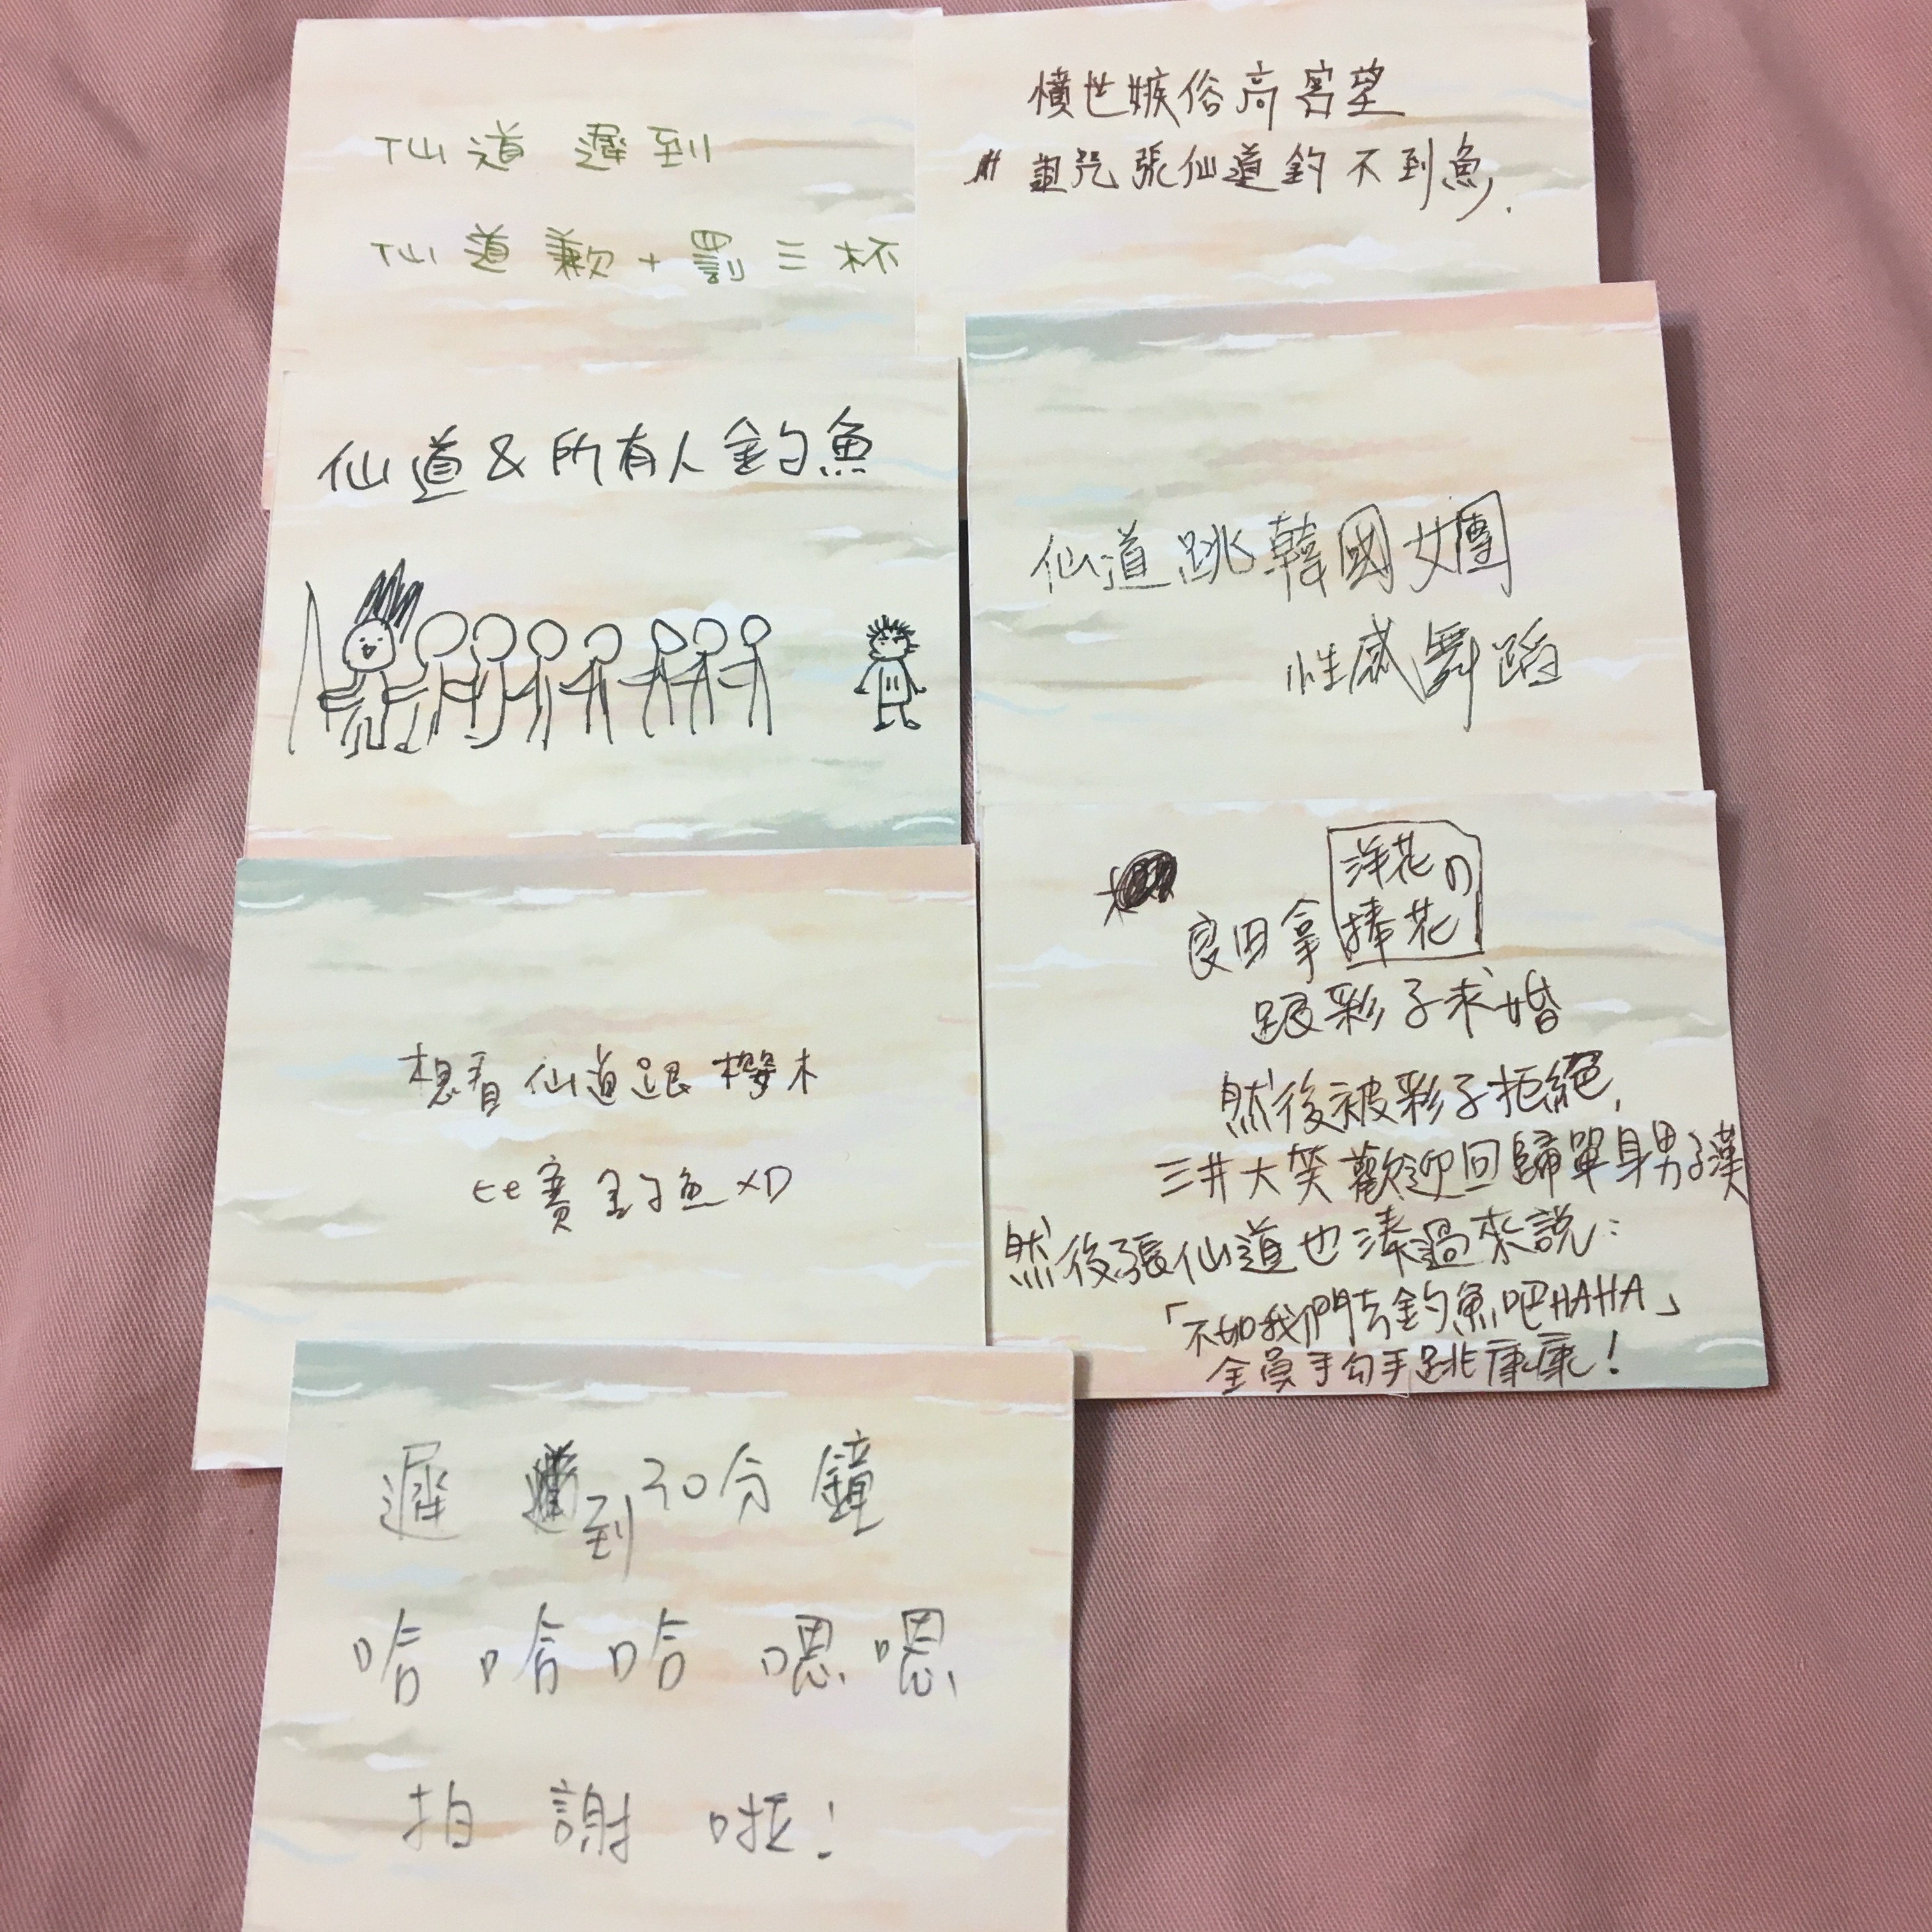 仙道遲到
仙道歉+罰三杯
憤世嫉俗高客望
詛咒張仙道釣不到魚.
仙道&所有人釣魚
仙道跳韓國女團
性感舞蹈
想看仙道跟櫻木
比賽釣魚XD
洋花の
良田拿捧花
跟彩子求婚
然後被彩子拒絕,
三井大笑歡迎回歸單身男子漢
然後張仙道也湊過來說:
「不如我們去釣魚吧HAHA」
全員手勾手跳康康!
遲到30分鐘
哈哈哈嗯嗯
拍謝啦!